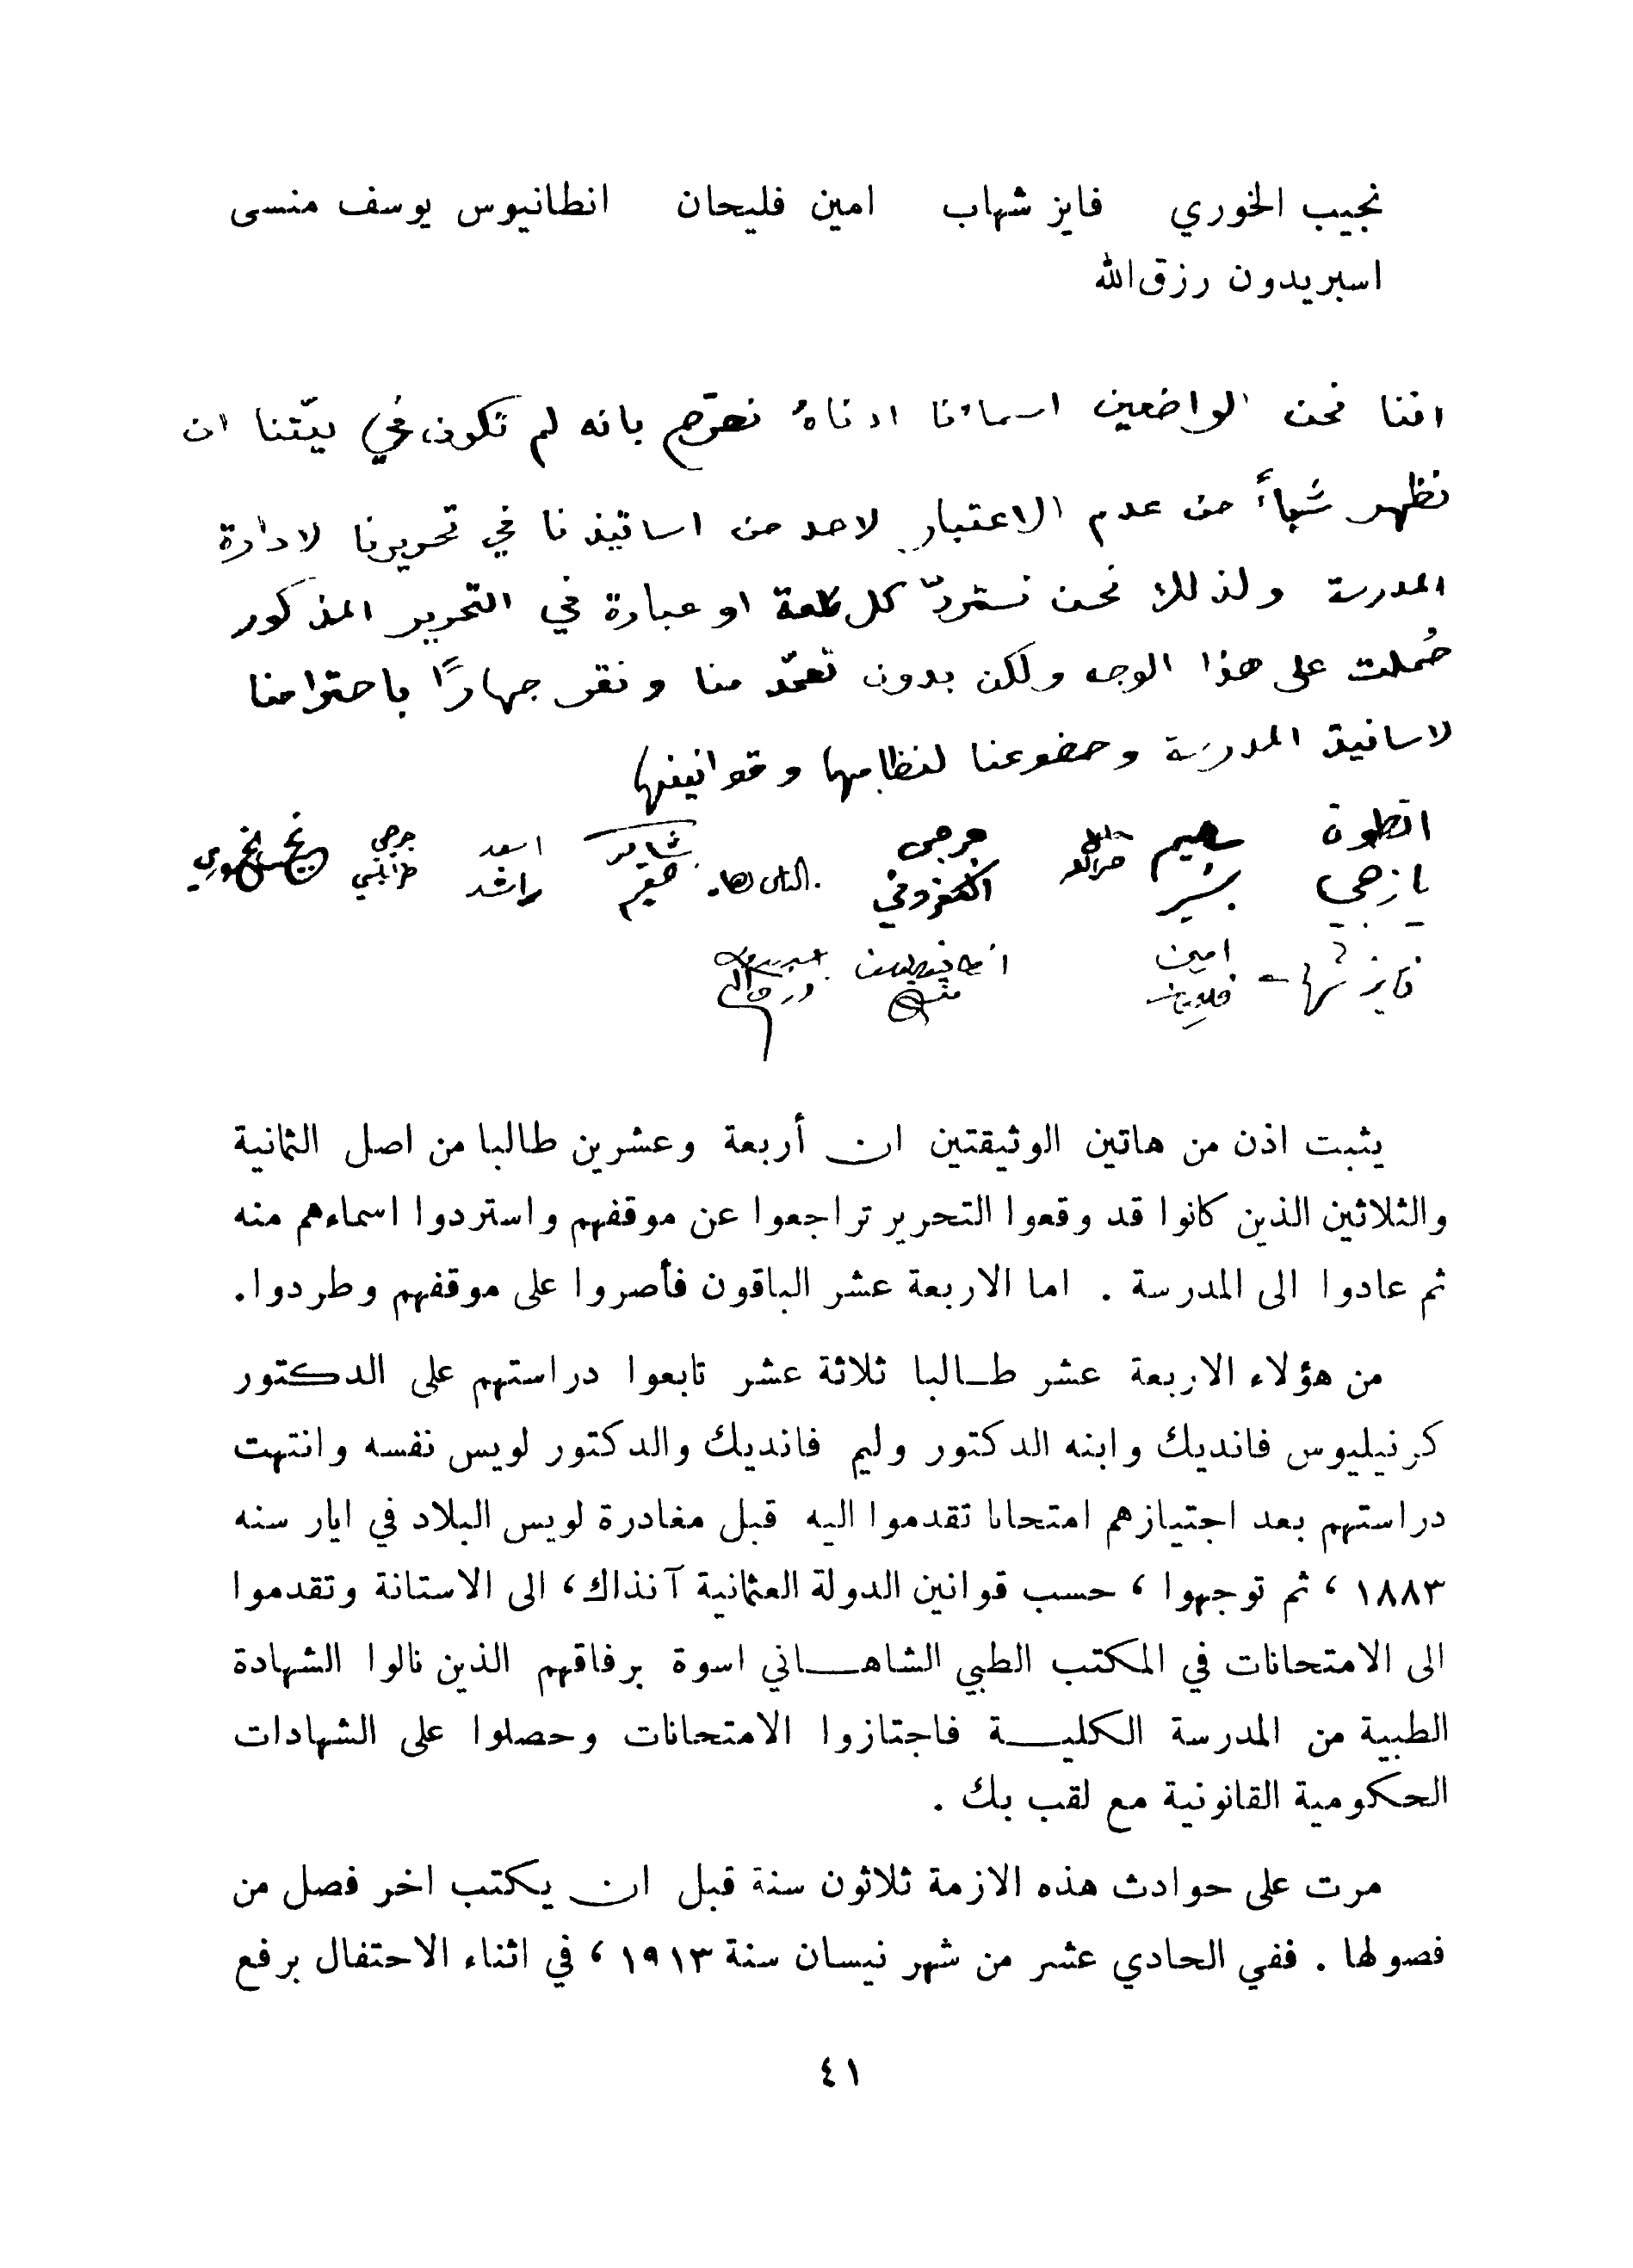 نجيب الخوري فايز شهاب امين فليحان انطانيوس يوسف منسى
اسبريدون رزق الله
اننا نحن الواضعين اسمائنا ادناهُ نصرّح بانه لم تكون في نيّتنا ان
نظهر شيأً من عدم الاعتبار لاحد من اساتيذنا في تحريرنا لادارة
المدرسة ولذلك نحن نستردّ كل كلمة او عبارة في التحرير المذكور
حُملت على هذا الوجه ولكن بدون تعمّد منا ونقر جهارًا باحترامنا
لاساتيذ المدرسة وخضوعنا لنظامها وقوانينها
انطون سليم جرجي شاكر اسعد جرجي نجيب الخوري
يازجي راشد طرابلسي
فايز شهاب امين انطانيوس يوسف
فليحان منسى رزق الله
يثبت اذن من هاتين الوثيقتين ان أربعة وعشرين طالبا من اصل الثمانية
والثلاثين الذين كانوا قد وقعوا التحرير تراجعوا عن موقفهم واستردوا اسماءهم منه
ثم عادوا الى المدرسة . اما الاربعة عشر الباقون فأصروا على موقفهم وطردوا.
من هؤلاء الاربعة عشر طالبا ثلاثة عشر تابعوا دراستهم على الدكتور
كرنيليوس فانديك وابنه الدكتور وليم فانديك والدكتور لويس نفسه وانتهت
دراستهم بعد اجتيازهم امتحانا تقدموا اليه قبل مغادرة لويس البلاد في ايار سنه
١٨٨٣ ، ثم توجهوا ، حسب قوانين الدولة العثمانية آنذاك، الى الاستانة وتقدموا
الى الامتحانات في المكتب الطبي الشاهاني اسوة برفاقهم الذين نالوا الشهادة
الطبية من المدرسة الكلية فاجتازوا الامتحانات وحصلوا على الشهادات
الحكومية القانونية مع لقب بك .
مرت على حوادث هذه الازمة ثلاثون سنة قبل ان يكتب اخر فصل من
فصولها . ففي الحادي عشر من شهر نيسان سنة ١٩١٣ ، في اثناء الاحتفال برفع
٤١